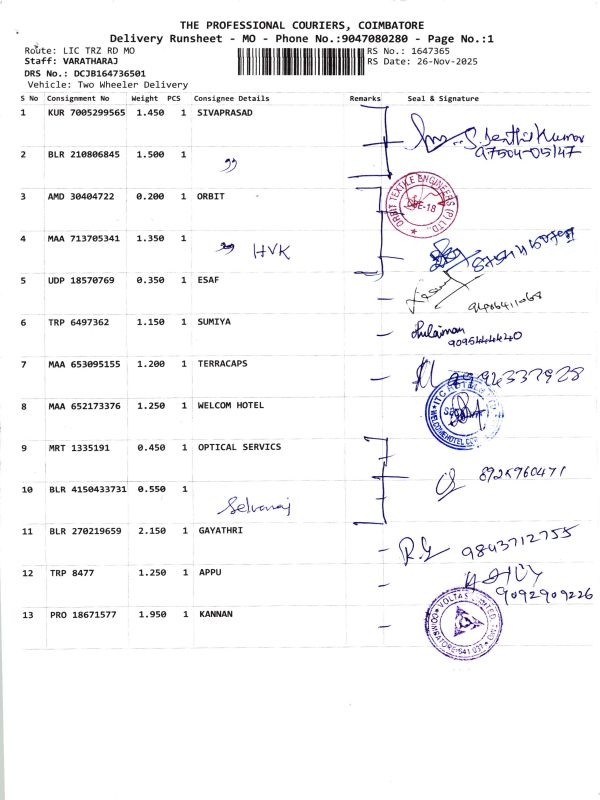 THE PROFESSIONAL COURIERS, COIMBATORE
Delivery Runsheet - MO - Phone No.:9047080280 - Page No.:1
Route: LIC TRZ RD MO RS No.: 1647365
Staff: VARATHARAJ RS Date: 26-Nov-2025
DRS No.: DCJB164736501
Vehicle: Two Wheeler Delivery
S No Consignment No Weight PCS Consignee Details Remarks Seal & Signature
1 KUR 7005299565 1.450 1 SIVAPRASAD
S. Senthil Kumar
97504-05147
2 BLR 210806845 1.500 1 "
3 AMD 30404722 0.200 1 ORBIT
ORBIT TEXTILE ENGINEERS (P) LTD.
CBE-18
4 MAA 713705341 1.350 1 " HVK
5 UDP 18570769 0.350 1 ESAF
6 TRP 6497362 1.150 1 SUMIYA
Sulaiman
9095444440
7 MAA 653095155 1.200 1 TERRACAPS
9994337928
8 MAA 652173376 1.250 1 WELCOM HOTEL
WELCOMHOTEL
9 MRT 1335191 0.450 1 OPTICAL SERVICS
8925960471
10 BLR 4150433731 0.550 1
Selvaraj
11 BLR 270219659 2.150 1 GAYATHRI
R.G 9843712755
12 TRP 8477 1.250 1 APPU
9092909226
13 PRO 18671577 1.950 1 KANNAN
VOLTAS LIMITED
COIMBATORE-641 037